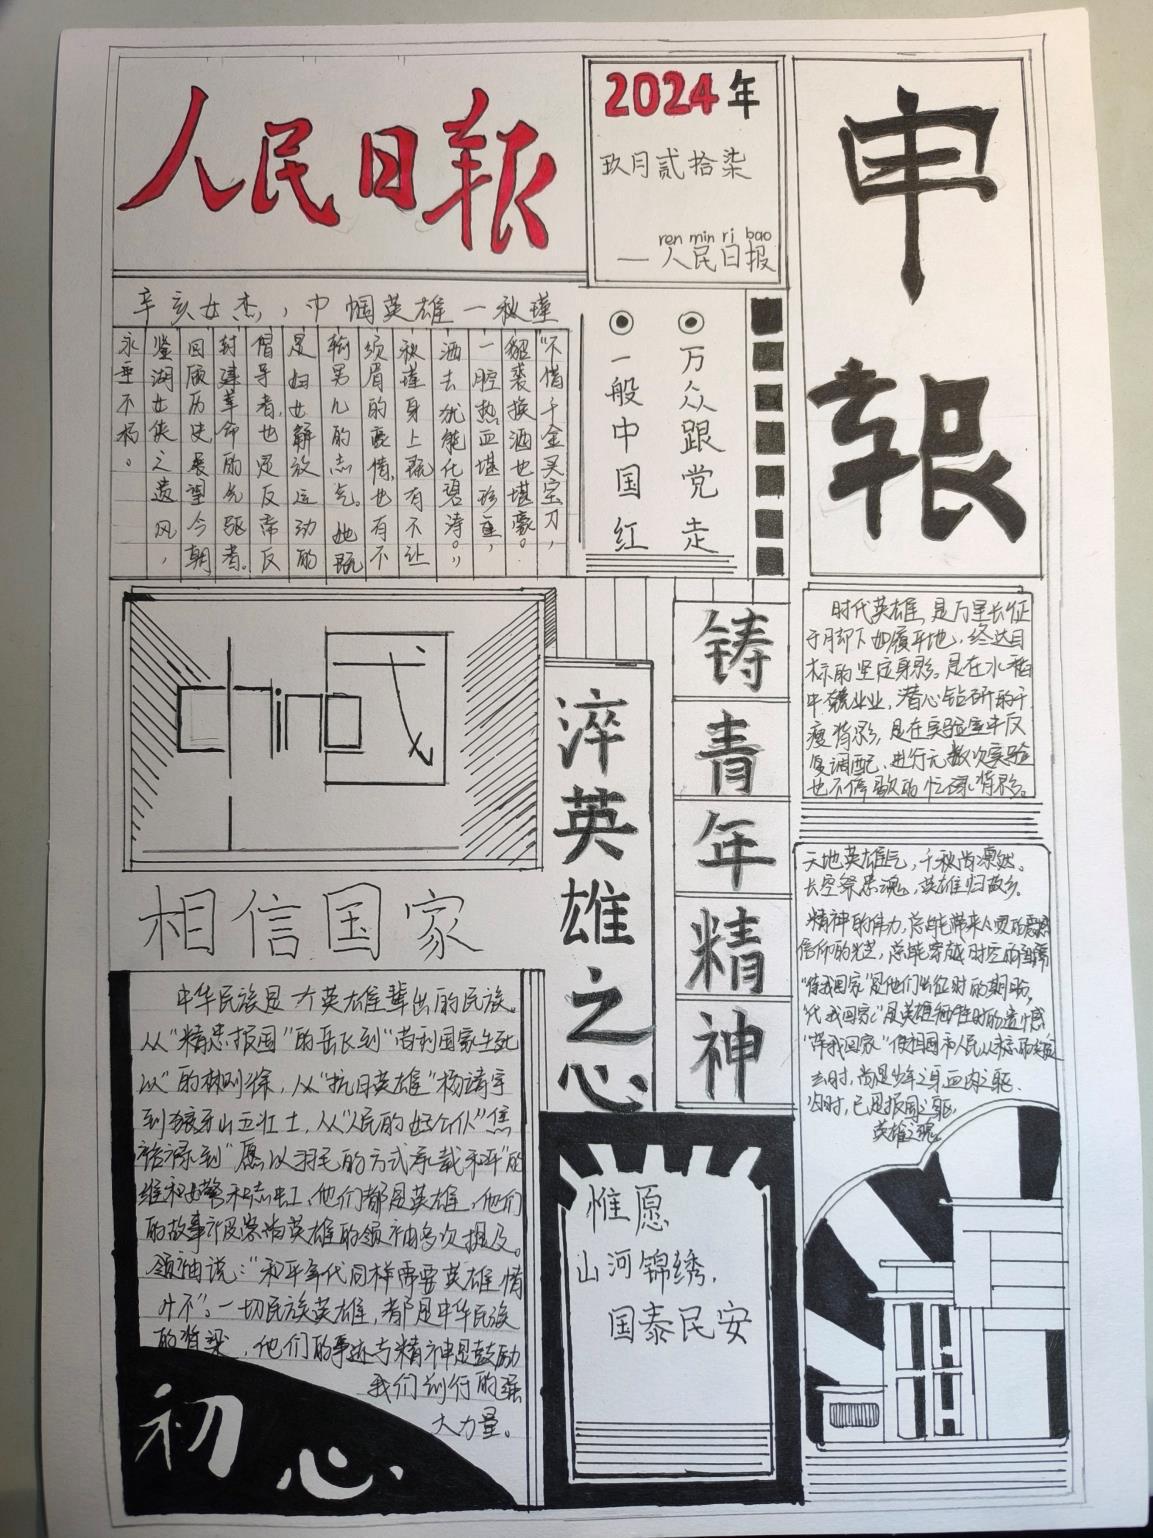 人民日報
2024年
玖月贰拾柒
ren min ri bao
—人民日报
申報
辛亥女杰，巾帼英雄—秋瑾
“不惜千金买宝刀，
貂裘换酒也堪豪。
一腔热血堪珍重，
洒去犹能化碧涛。”
秋瑾身上既有不让
须眉的豪情,也有不
输男儿的志气。她既
是妇女解放运动的
倡导者,也是反帝反
封建革命的先驱者。
回顾历史展望今朝
鉴湖女侠之遗风，
永垂不朽。
万众跟党走
一般中国红
时代英雄,是万里长征
于月却下如履平地，终达目
标的坚定身影,是在水稻
中兢业业，潜心钻研的干
瘦背影，是在实验室中反
复调配、进行无数次实验
也不停歇的忙碌背影。
中国式
相信国家
淬英雄之心
铸青年精神
天地英雄气，千秋尚凛然。
长空祭忠魂，英雄归故乡。
精神的伟力,总能带来人更的震撼
信仰的光芒，总能穿越时空而
“待我回家”是他们出征时的期盼，
“代我回家”是英雄牺牲时的遗憾
“等我回家”使祖国和人民从未
去时，尚是少年之身血肉之躯.
归时，已是报国之躯，
英雄之魂。
中华民族是一个英雄辈出的民族。
从“精忠报国”的岳飞到“苟利国家生死
以”的林则徐，从“抗日英雄”杨靖宇
到狼牙山五壮士，从“人民的好公仆”焦
裕禄到“愿以羽毛的方式承载和平”的
维和女警和志虹，他们都是英雄，他们
的故事被崇尚英雄的领袖多次提及。
领袖说：“和平年代同样需要英雄情
怀”。一切民族英雄，都是中华民族
的脊梁，他们的事迹与精神是鼓励
我们前行的强
大力量。
初心
惟愿
山河锦绣，
国泰民安